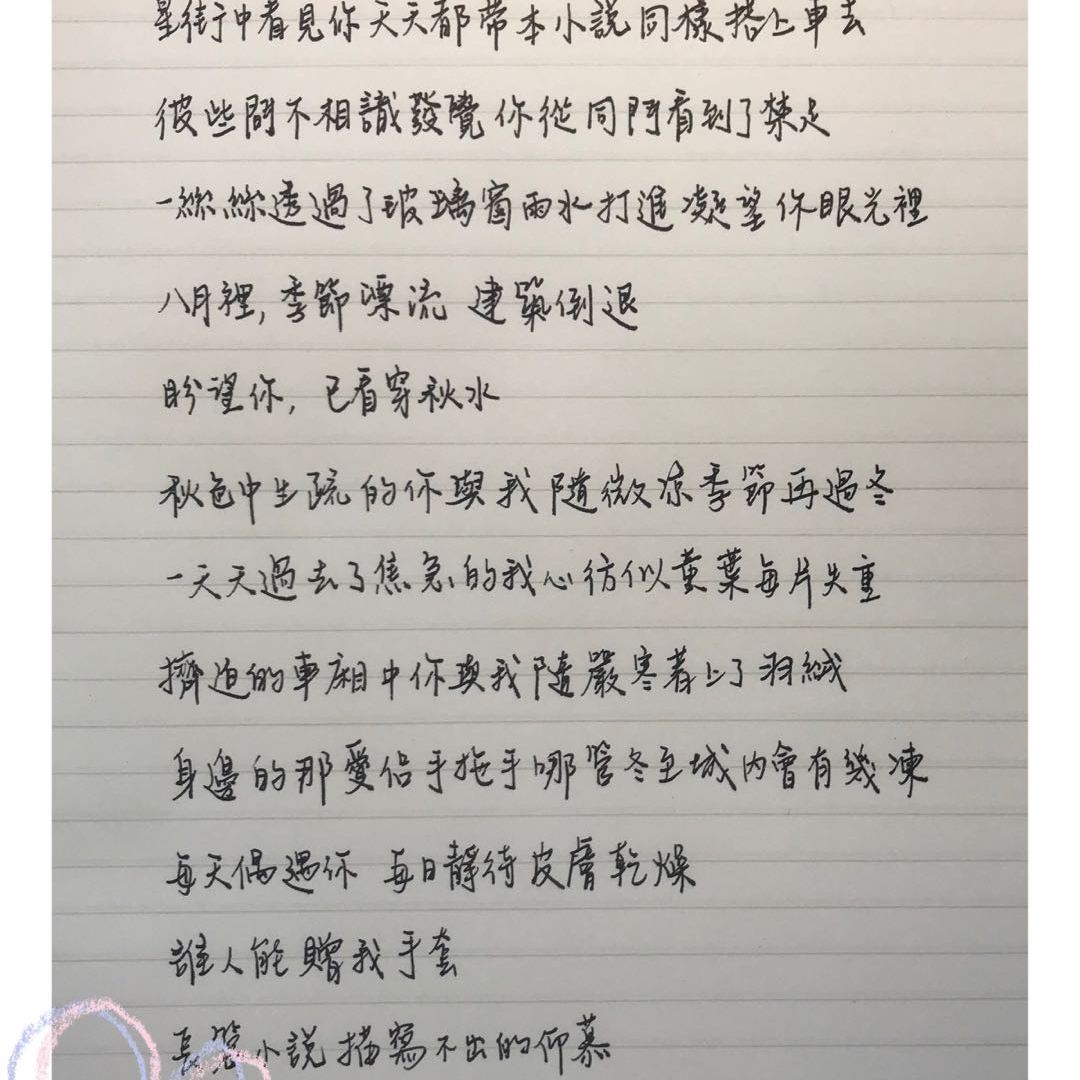 星街中看見你天天都帶本小說同樣搭上車去
彼些間不相識發覺你從同門看到了禁足
一絲絲透過了玻璃窗雨水打進凝望你眼光裡
八月裡,季節漂流 建築倒退
盼望你,已看穿秋水
秋色中生疏的你與我隨微涼季節再過冬
一天天過去了焦急的我心彷似黃葉每片失重
擠迫的車廂中你與我隨嚴寒着上了羽絨
身邊的那愛侶手拖手哪管冬至城內會有幾凍
每天偶遇你 每日靜待皮膚乾燥
誰人能贈我手套
長篇小說描寫不出的仰慕